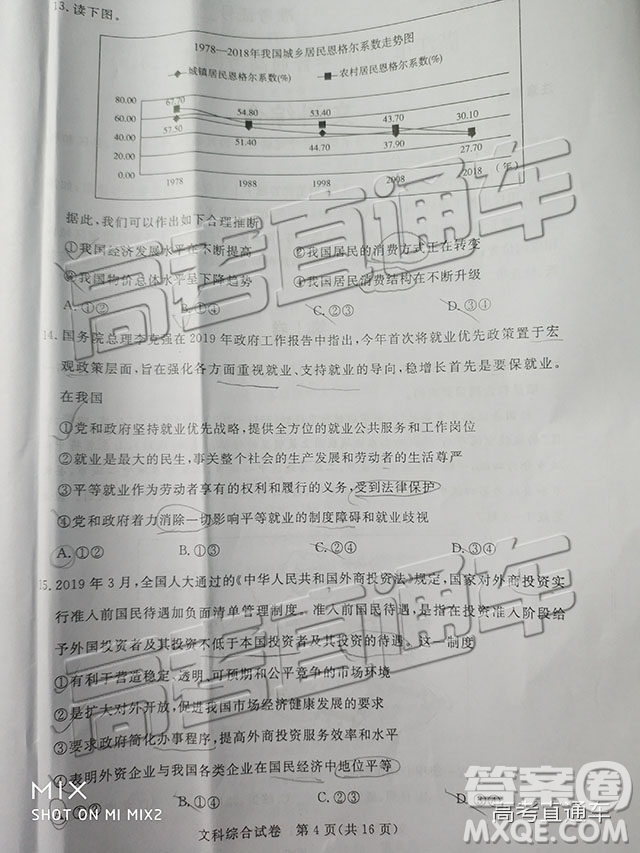 13. 读下图。
1978—2018年我国城乡居民恩格尔系数走势图
城镇居民恩格尔系数(%) 农村居民恩格尔系数(%)
80.00
60.00
40.00
20.00
0.00
67.70 54.80 53.40 43.70 30.10
57.50 51.40 44.70 37.90 27.70
1978 1988 1998 2008 2018 (年)
据此，我们可以作出如下合理推断
①我国经济发展水平在不断提高 ②我国居民的消费方式正在转变
③我国物价总体水平呈下降趋势 ④我国居民消费结构在不断升级
A.①② B.①④ C.②③ D.③④
14. 国务院总理李克强在2019年政府工作报告中指出，今年首次将就业优先政策置于宏
观政策层面，旨在强化各方面重视就业、支持就业的导向，稳增长首先是要保就业。
在我国
①党和政府坚持就业优先战略，提供全方位的就业公共服务和工作岗位
②就业是最大的民生，事关整个社会的生产发展和劳动者的生活尊严
③平等就业作为劳动者享有的权利和履行的义务，受到法律保护
④党和政府着力消除一切影响平等就业的制度障碍和就业歧视
A.①② B.①③ C.②④ D.③④
15. 2019年3月，全国人大通过的《中华人民共和国外商投资法》规定，国家对外商投资实
行准入前国民待遇加负面清单管理制度。准入前国民待遇，是指在投资准入阶段给
予外国投资者及其投资不低于本国投资者及其投资的待遇。这一制度
①有利于营造稳定、透明、可预期和公平竞争的市场环境
②是扩大对外开放，促进我国市场经济健康发展的要求
③要求政府简化办事程序，提高外商投资服务效率和水平
④表明外资企业与我国各类企业在国民经济中地位平等
A.①② B.①③ C.②④ D.③④
文科综合试卷 第4页(共16页)
高考直通车
高考直通车
高考直通车
MIX
SHOT ON MI MIX2
答案圈
高考直通车
MXQE.COM